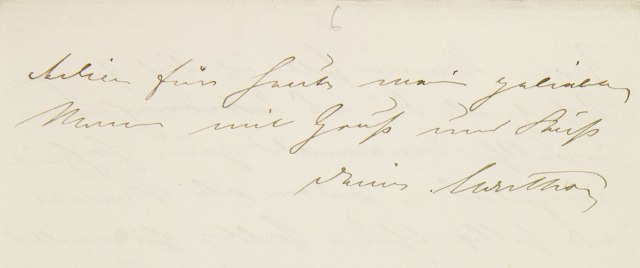 6
Adieu für heute mein geliebter
Mann mit Gruß und Kuß
Deine Marthe